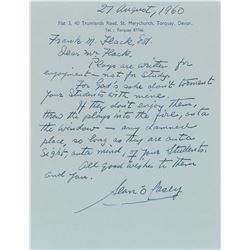 27 August, 1960
Flat 3, 40 Trumlands Road, St. Marychurch, Torquay, Devon.
Tel.: Torquay 87766.
Frank M. Flack, Esq.
Dear Mr Flack.
Plays are written for
enjoyment – not for study.
For God's sake don't torment
your students with mine.
If they don't enjoy them,
throw the plays into the fire, outa
the window — any damned
place, so long as they are outa
sight, outa mind, of your Students.
All good wishes to them
and you.
Sean O'Casey